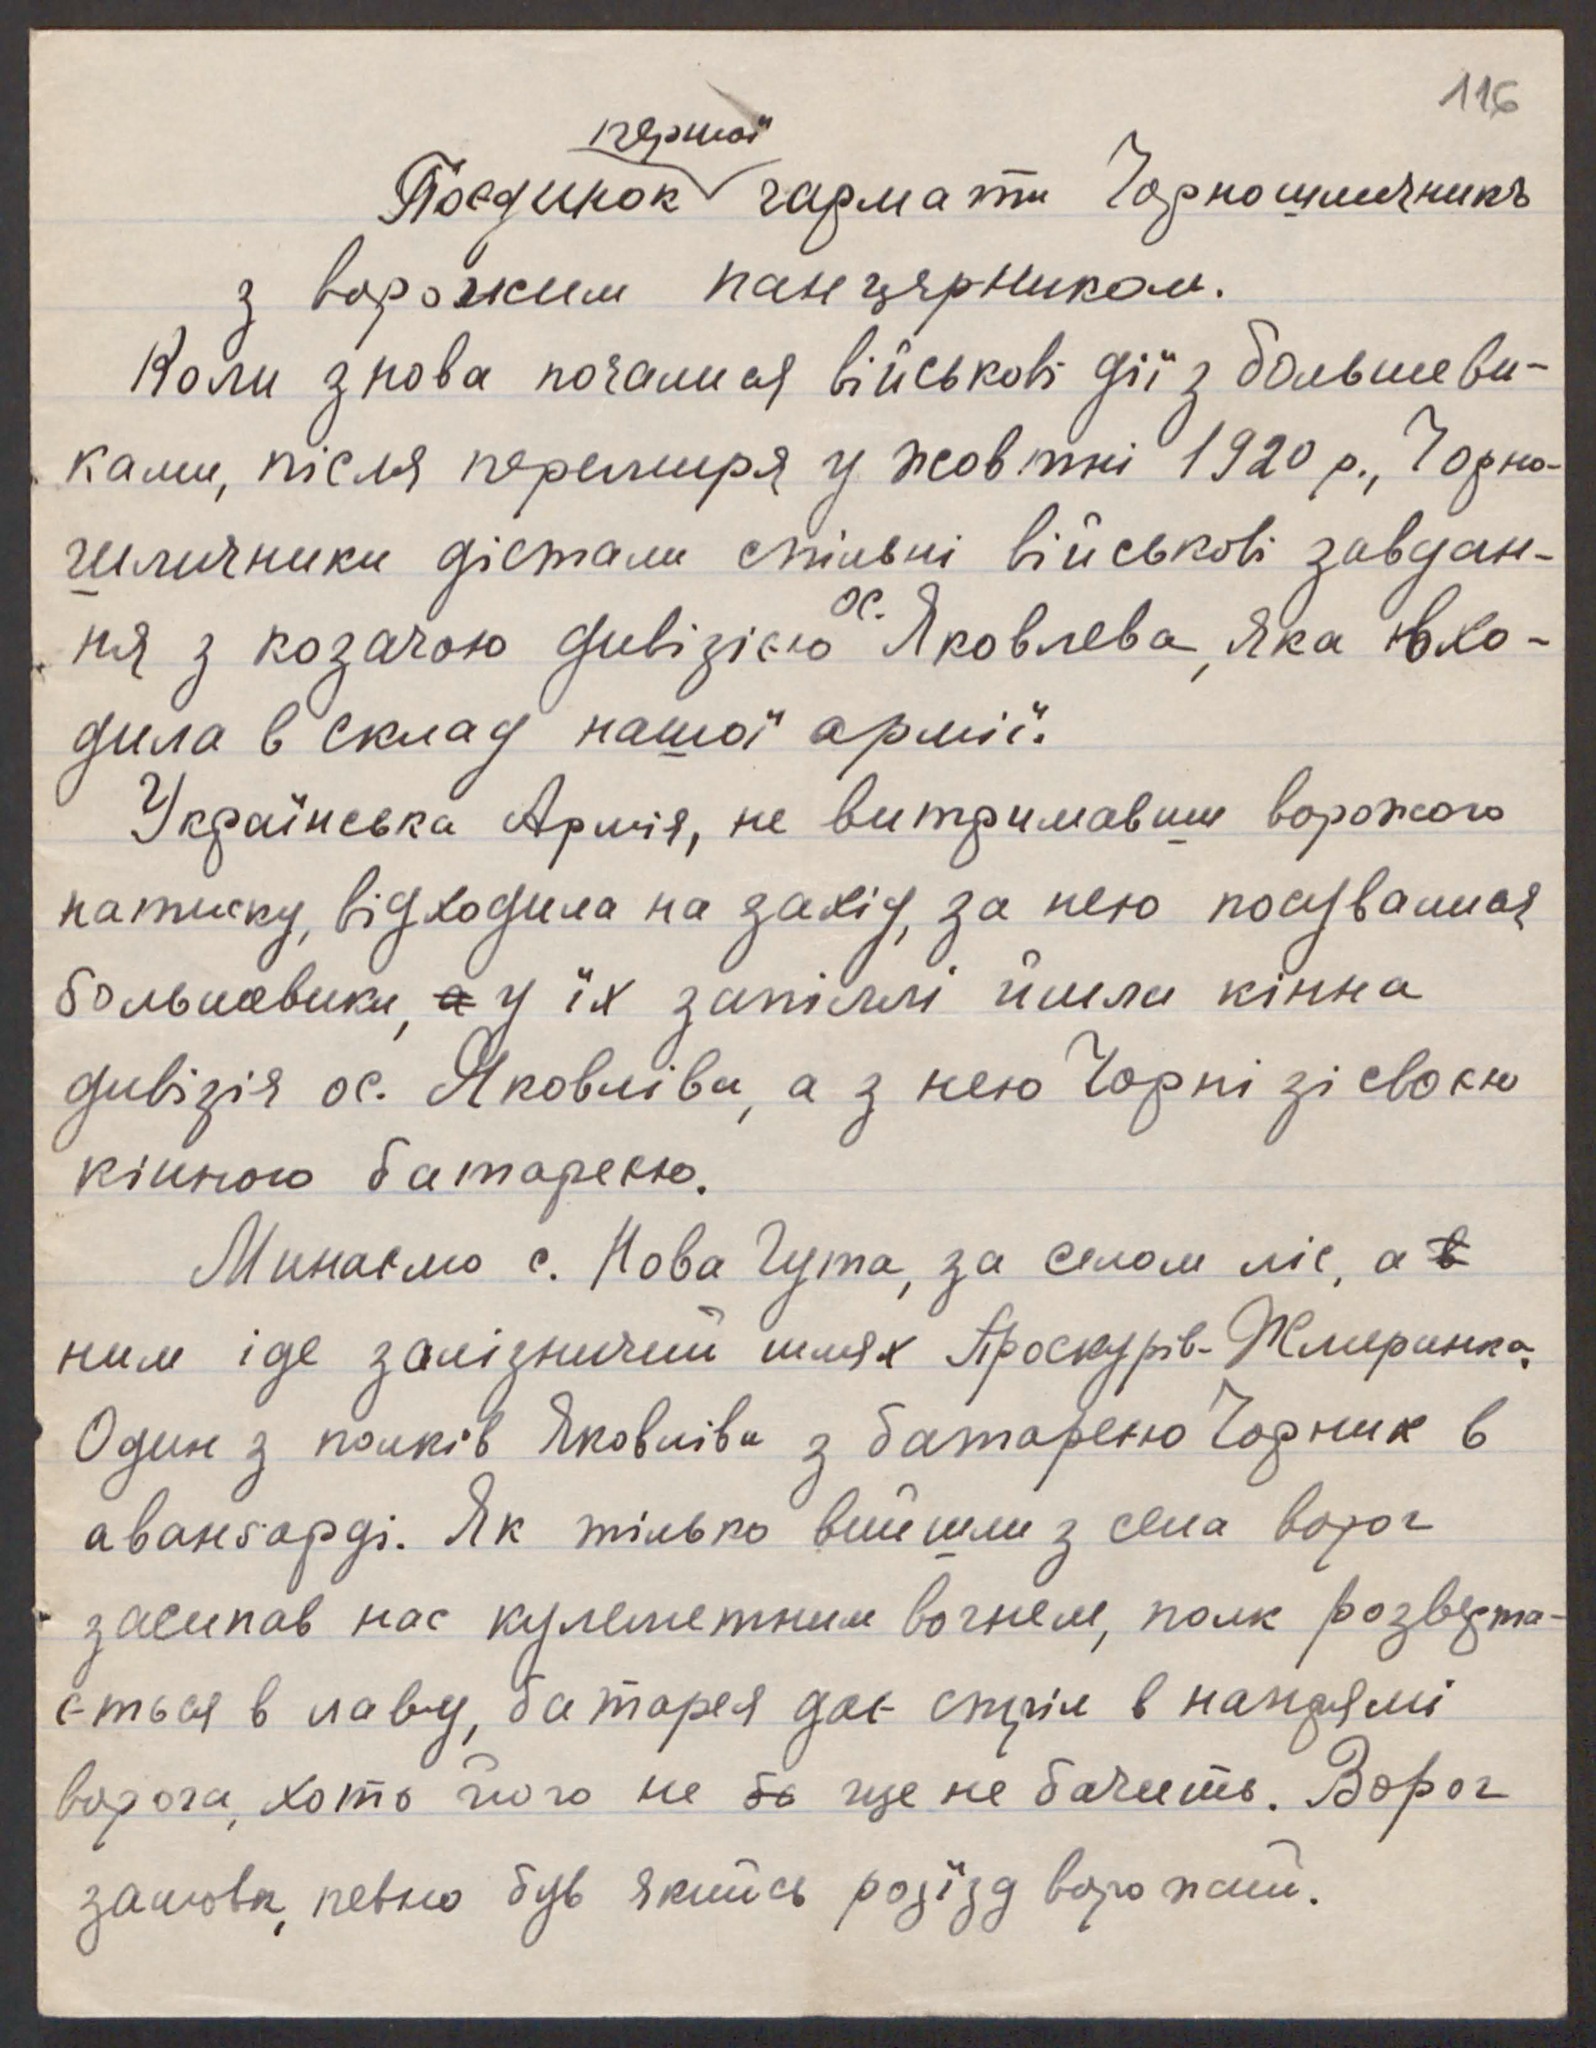 116
першої
Поєдинок гармати Чорношличників
з ворожим панцирником.
Коли знова почалися військові дії з большеви-
ками, після перемиря у жовтні 1920 р., Чорно-
шличники дістали спільні військові завдан-
ня з козачою дивізією ос. Яковлева, яка вхо-
дила в склад нашої армії.
Українська Армія, не витримавши ворожого
натиску, відходила на захід, за нею посувалися
большевики, а у їх запіллі йшла кінна
дивізія ос. Яковліва, а з нею Чорні зі своєю
кінною батареєю.
Минаємо с. Нова Гута, за селом ліс, а в
ним іде залізничий шлях Проскурів-Жмиринка.
Один з полків Яковліва з батареєю Чорних в
аванґарді. Як тілько вийшли з села ворог
засипав нас кулеметним вогнем, полк розверта-
ється в лаву, батарея дає стріл в напрямі
ворога, хоть його не ба ще не бачить. Ворог
замовк, певно був якийсь розїзд ворожий.